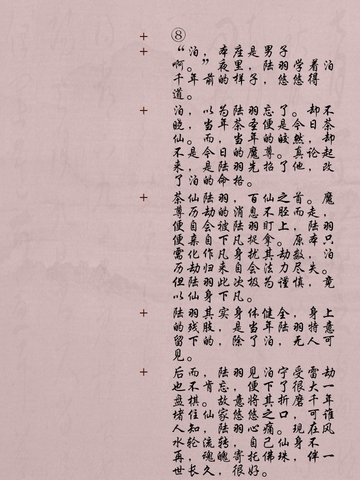 ⑧
“泊，本座是男子
啊。”夜里，陆羽学着泊
千年前的样子，悠悠得
道。
泊，以为陆羽忘了。却不
晓，当年茶圣便是今日茶
仙。而，当年的皎然，却
不是今日的魔尊。真论起
来，是陆羽先掐了他，改
了泊的命格。
茶仙陆羽，百仙之首。魔
尊历劫的消息不胫而走，
便自会被陆羽盯上，陆羽
便亲自下凡捉拿。原本只
需化作凡身扰其劫数，泊
历劫归来自会法力尽失。
但陆羽此次极为谨慎，竟
以仙身下凡。
陆羽其实身体健全，身上
的残肢，是当年陆羽特意
留下的，除了泊，无人可
见。
后而，陆羽见泊宁受雷劫
也不肯忘，便下了很大一
盘棋。故意将其折磨千年
堵住仙家悠悠之口，可谁
人知，陆羽心痛。现在风
水轮流转，自己仙身不
再，魂魄寄托佛珠，伴一
世长久，很好。